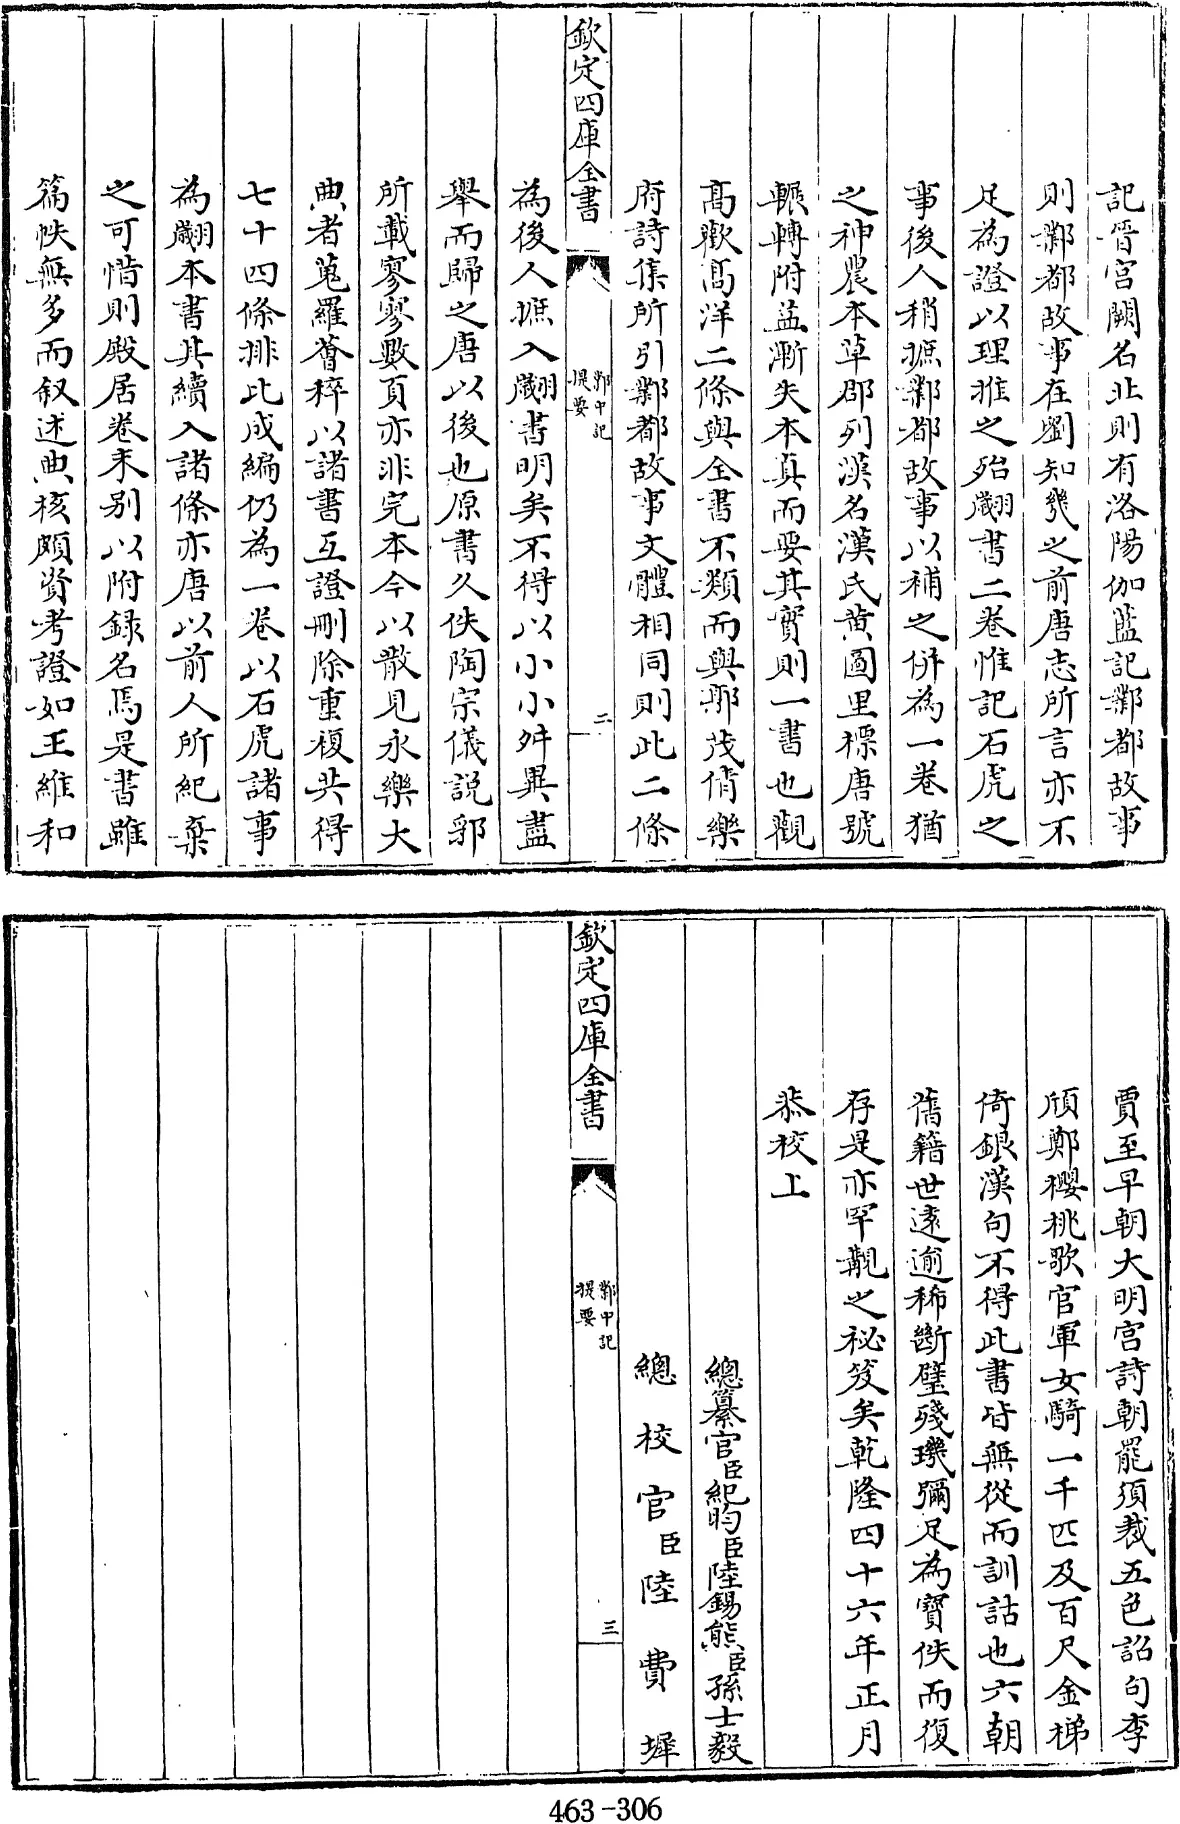 記晉宮闕名北則有洛陽伽藍記鄴都故事
則鄴都故事在劉知幾之前唐志所言亦不
足為證以理推之殆翽書二卷惟記石虎之
事後人稍摭鄴都故事以補之併為一卷猶
之神農本草郡列漢名漢氏黄圖里標唐號
輾轉附益漸失本真而要其實則一書也觀
髙歡髙洋二條與全書不類而與郭茂倩樂
府詩集所引鄴都故事文體相同則此二條
欽定四庫全書
鄴中記
提要
二
為後人摭入翽書明矣不得以小小舛異盡
舉而歸之唐以後也原書久佚陶宗儀説郛
所載寥寥數頁亦非完本今以散見永樂大
典者蒐羅薈稡以諸書互證刪除重複共得
七十四條排比成編仍為一卷以石虎諸事
為翽本書其續入諸條亦唐以前人所紀棄
之可惜則殿居卷末别以附録名焉是書雖
篇帙無多而叙述典核頗資考證如王維和
賈至早朝大明宮詩朝罷須裁五色詔句李
頎鄭櫻桃歌官軍女騎一千匹及百尺金梯
倚銀漢句不得此書皆無從而訓詁也六朝
舊籍世逺逾稀斷璧殘璣彌足為寳佚而復
存是亦罕覯之祕笈矣乾隆四十六年正月
恭校上
總纂官臣紀昀臣陸錫熊臣孫士毅
總校官臣陸費墀
欽定四庫全書
鄴中記
提要
三
463-306